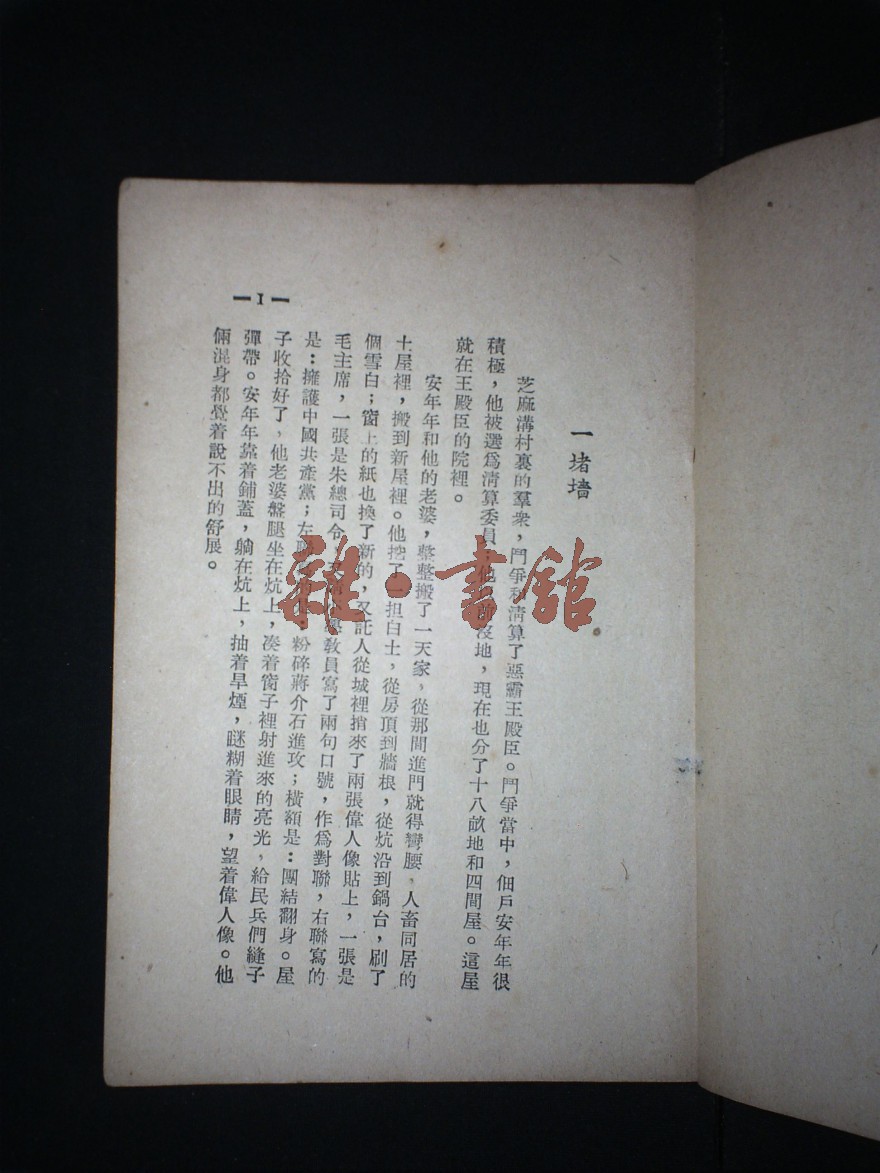 一堵墻
芝麻溝村裏的羣衆，鬥爭和清算了惡霸王殿臣。鬥爭當中，佃戶安年年很
積極，他被選爲清算委員；他以前沒地，現在也分了十八畝地和四間屋。這屋
就在王殿臣的院裡。
安年年和他的老婆，整整搬了一天家，從那間進門就得彎腰，人畜同居的
土屋裡，搬到新屋裡。他挖了一担白土，從房頂到牆根，從炕沿到鍋台，刷了
個雪白；窗上的紙也換了新的，又託人從城裡捎來了兩張偉人像貼上，一張是
毛主席，一張是朱總司令，又 學教員寫了兩句口號，作爲對聯，右聯寫的
是：擁護中國共產黨；左聯 粉碎蔣介石進攻；橫額是：團結翻身。屋
子收拾好了，他老婆盤腿坐在炕上，凑着窗子裡射進來的亮光，給民兵們縫子
彈帶。安年年靠着鋪蓋，躺在炕上，抽着旱煙，瞇糊着眼睛，望着偉人像。他
倆混身都覺着說不出的舒展。
— 1 —
雜·書館